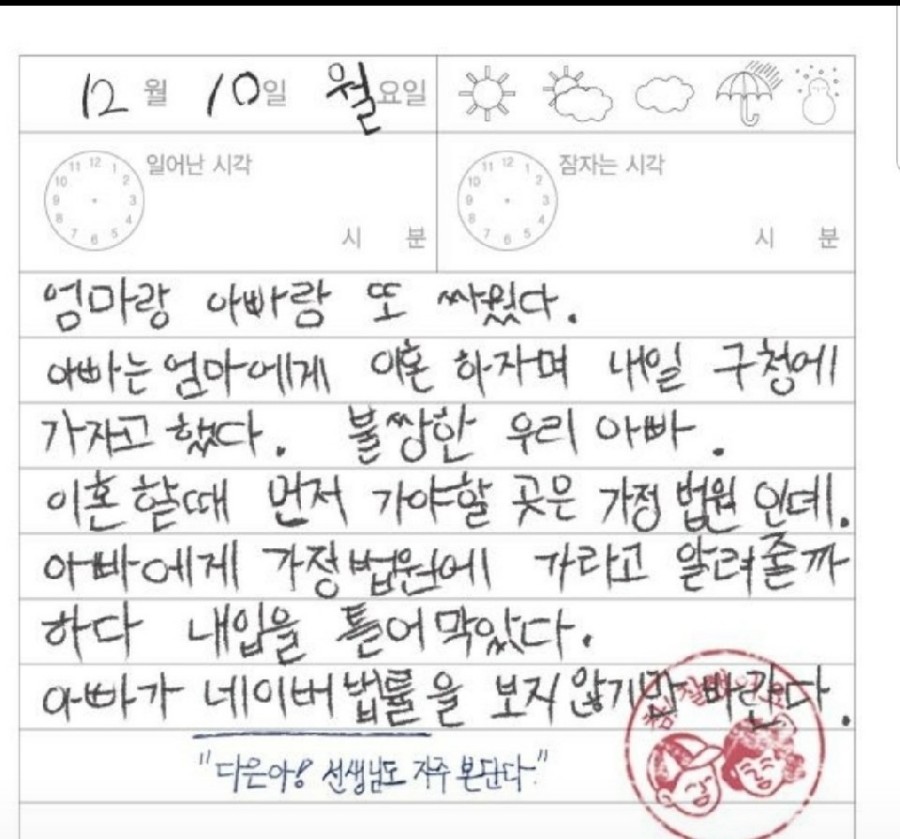 12월 10일 월요일
12 1 2 3 4 5 6 7 8 9 10 11 일어난 시각
시 분
12 1 2 3 4 5 6 7 8 9 10 11 잠자는 시각
시 분
엄마랑 아빠랑 또 싸웠다.
아빠는 엄마에게 이혼 하자며 내일 구청에
가자고 했다. 불쌍한 우리 아빠.
이혼 할때 먼저 가야할 곳은 가정 법원 인데.
아빠에게 가정법원에 가라고 알려줄까
하다 내입을 틀어막았다.
아빠가 네이버법률을 보지 않기만 바란다.
"다은아! 선생님도 자주 본단다."
참 잘했어요